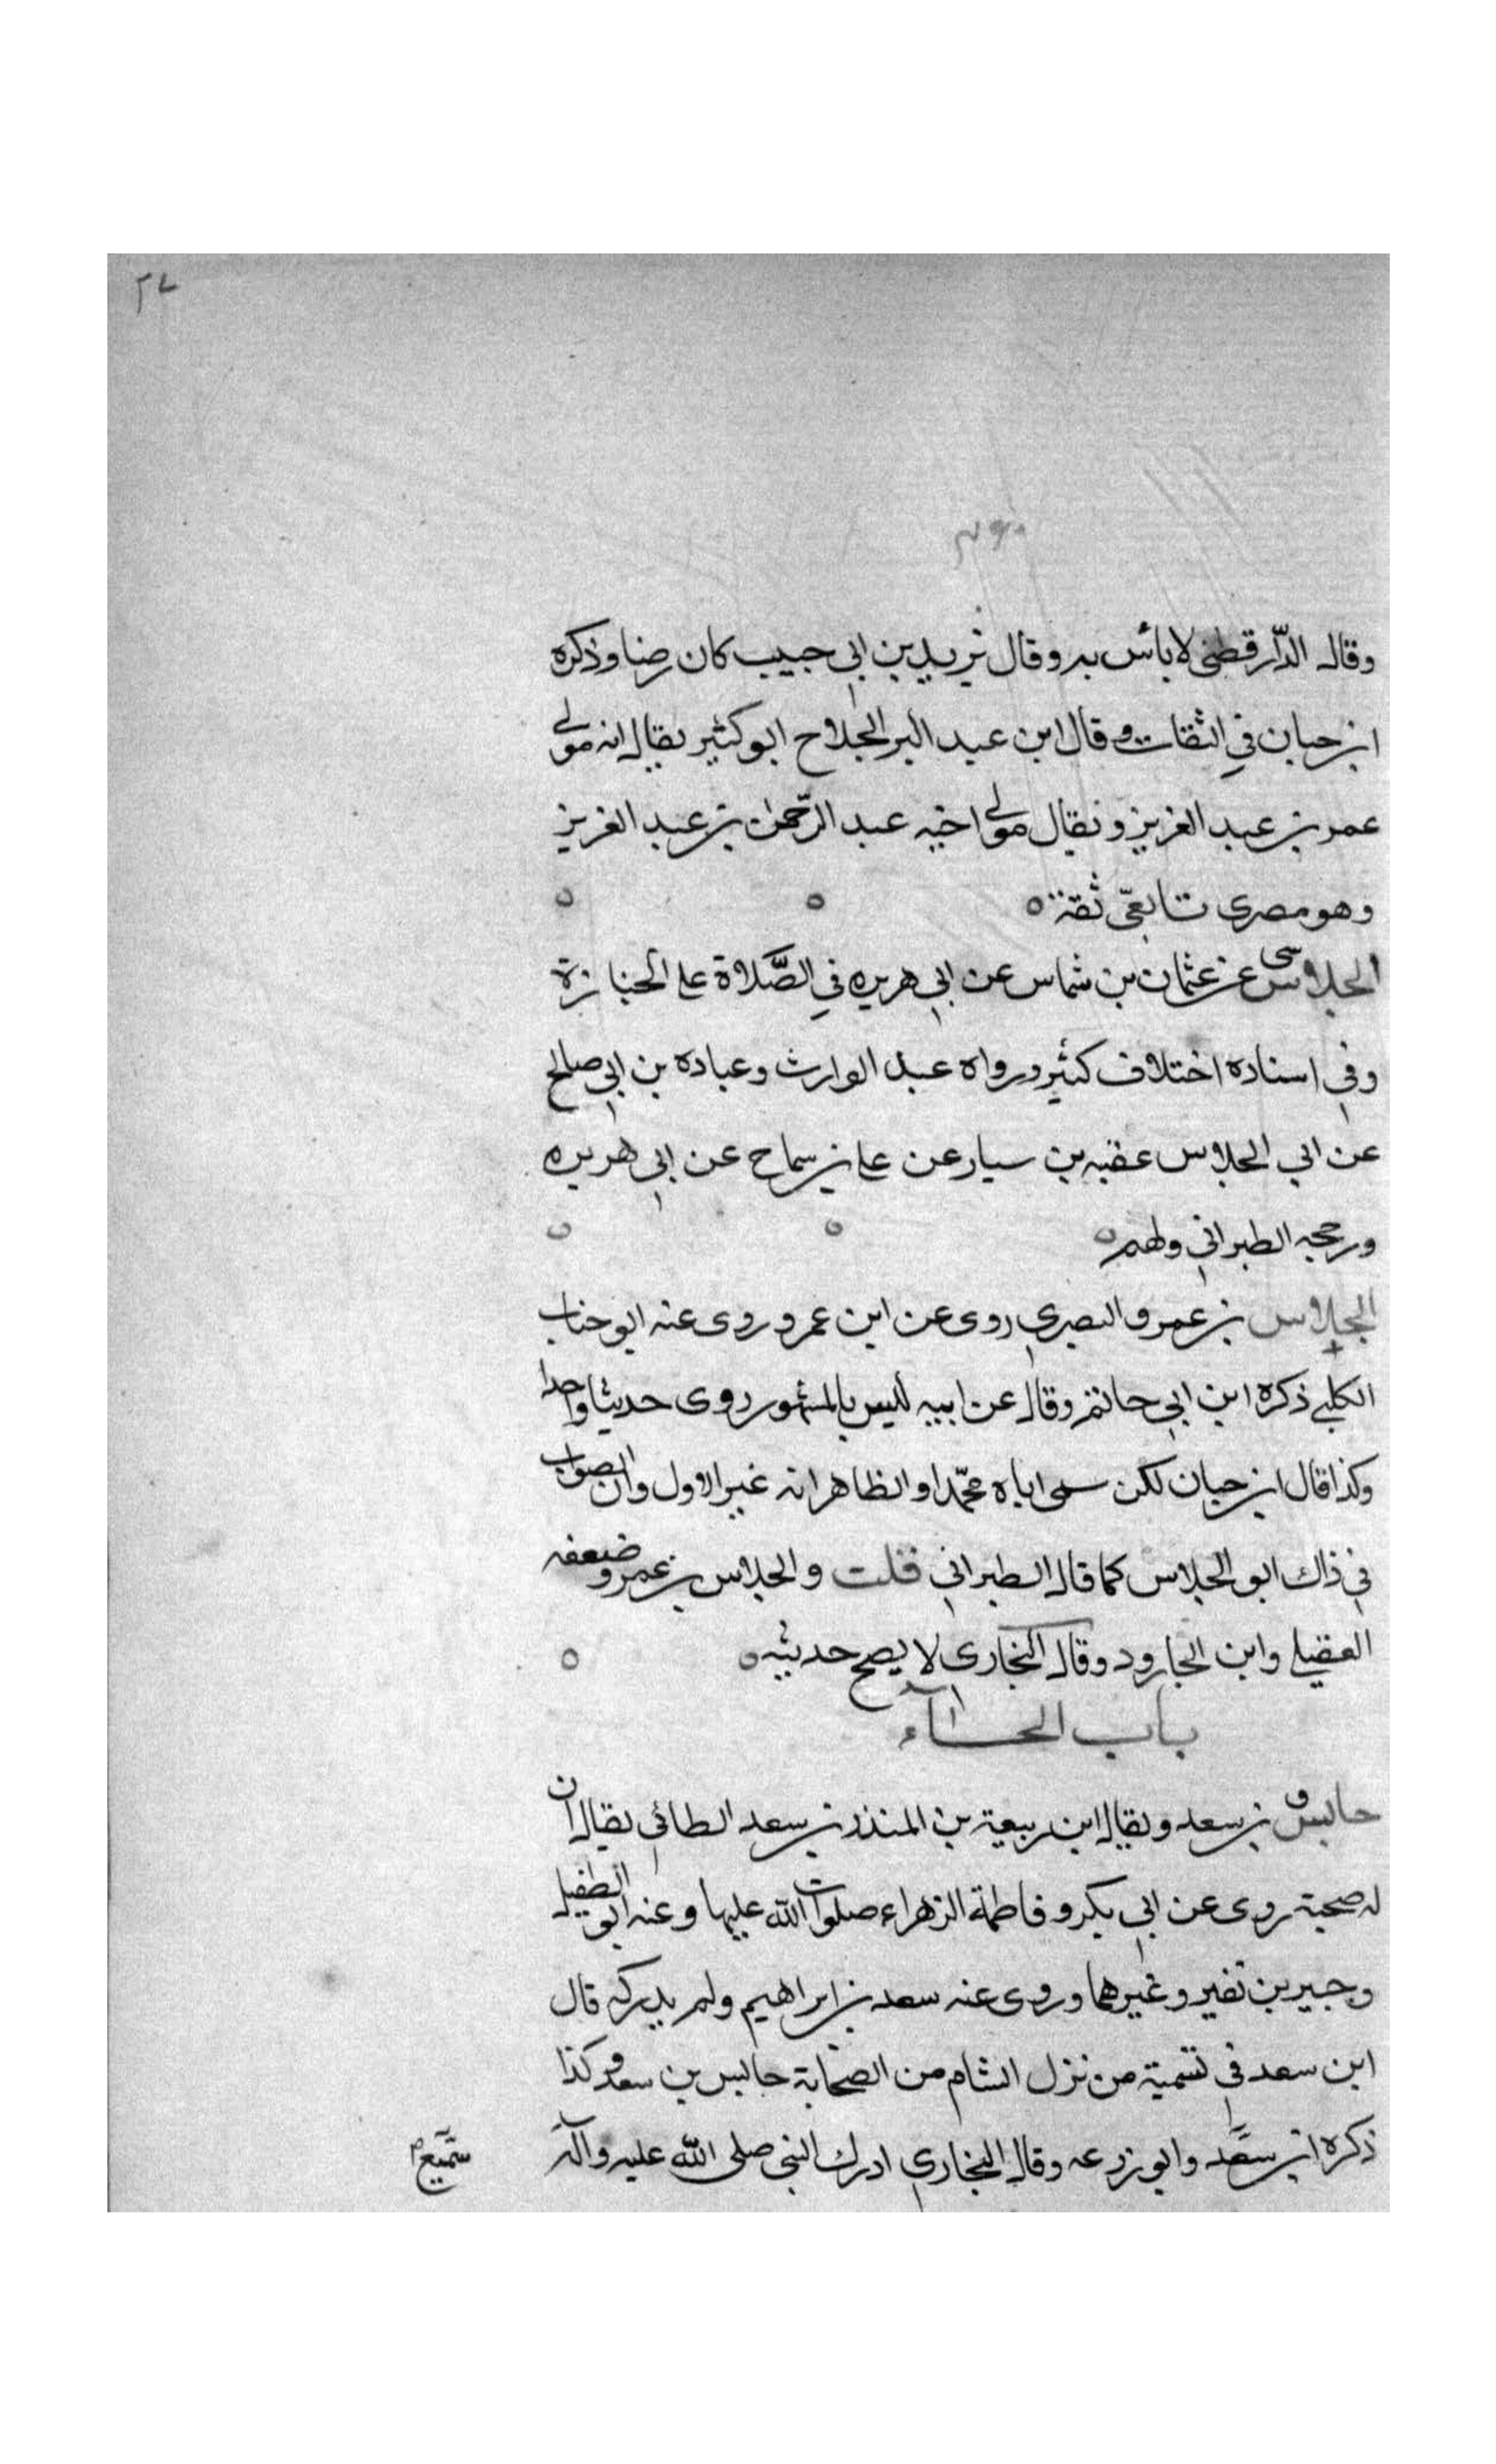 ٢٧
وقال الدّارقطنى لا بأس به وقال يزيد بن ابي حبيب كان رضا وذكره
ابن حبان في الثقات وقال ابن عبد البر الجلاح ابو كثير يقال انه مولى
عمر بن عبد العزيز ويقال مولى اخيه عبد الرّحمن بن عبد العزيز
وهو مصرى تابعىّ ثقة ه
الجلاس عن عثمان بن شماس عن ابي هريره في الصّلاة على الجنازة
وفي اسناده اختلاف كثير ورواه عبد الوارث وعباده بن ابي صالح
عن ابي الجلاس عقبه بن سيار عن على بن سماح عن ابي هريره
ورجحه الطبراني
الجلاس بن عمرو البصري روى عن ابن عمر وروى عنه ابو جناب
الكلبي ذكره ابن ابي حاتم وقال عن ابيه ليس بالمشهور روى حديثا واحدا
وكذا قال ابن حبان لكن سمى اباه محمّدا والظاهر انه غير الاول وان الصواب
في ذاك ابو الجلاس كما قال الطبراني قلت والجلاس بن عمرو ضعفه
العقيلي وابن الجارود وقال البخارى لا يصح حديثه ه
باب الحاء
حابس بن سعد ويقال ابن ربيعة بن المنذر بن سعد الطائي يقال ان
له صحبة روى عن ابي بكر وفاطمة الزهراء صلوات الله عليها وعنه ابو الطفيل
وجبير بن نفير وغيرهما وروى عنه سعد بن ابراهيم ولم يدركه قال
ابن سعد في تسمية من نزل الشام من الصحابة حابس بن سعد وكذا
ذكره ابن سعد وابو زرعه وقال البخاري ادرك النبي صلى الله عليه وآله
سميع